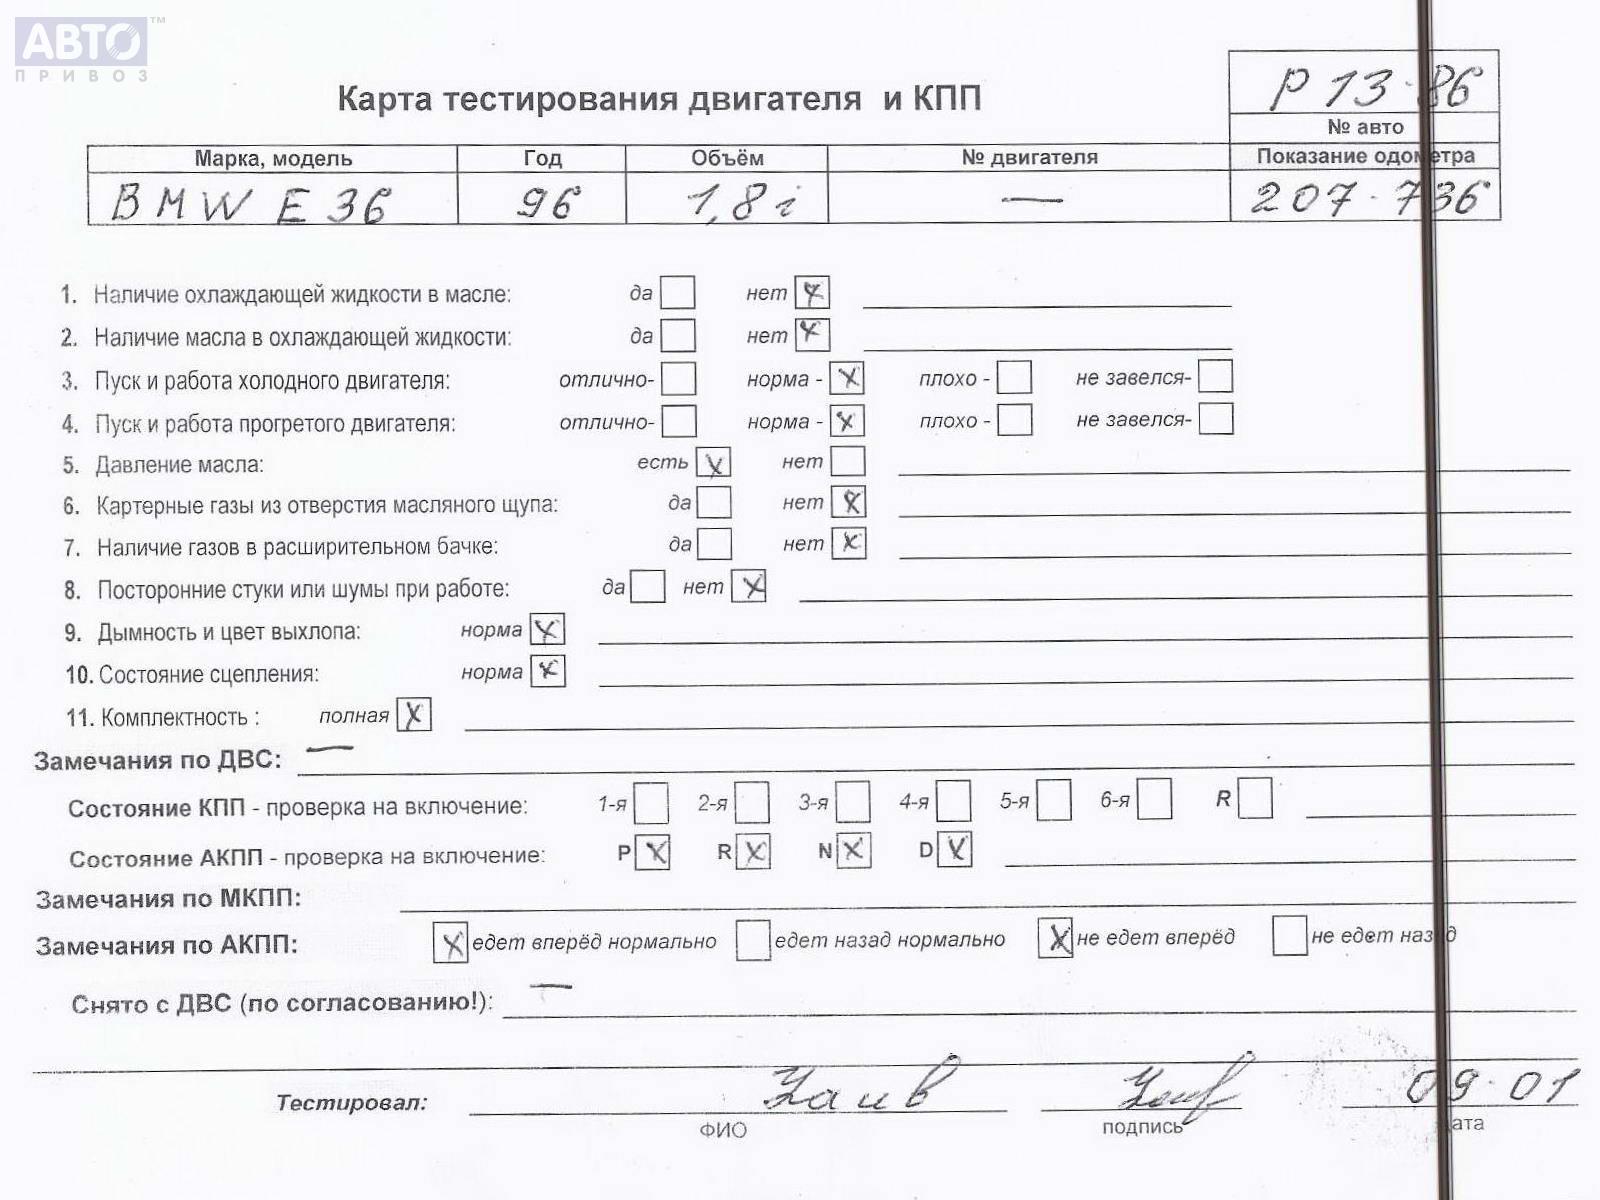 АВТО™
ПРИВОЗ
Карта тестирования двигателя и КПП
Р 13·86
№ авто
Марка, модель Год Объём № двигателя Показание одометра
BMW E 36 96 1,8 i — 207·736
1. Наличие охлаждающей жидкости в масле: да нет x
2. Наличие масла в охлаждающей жидкости: да нет x
3. Пуск и работа холодного двигателя: отлично- норма - x плохо - не завелся-
4. Пуск и работа прогретого двигателя: отлично- норма - x плохо - не завелся-
5. Давление масла: есть x нет
6. Картерные газы из отверстия масляного щупа: да нет x
7. Наличие газов в расширительном бачке: да нет x
8. Посторонние стуки или шумы при работе: да нет x
9. Дымность и цвет выхлопа: норма x
10. Состояние сцепления: норма x
11. Комплектность : полная x
Замечания по ДВС: —
Состояние КПП - проверка на включение: 1-я 2-я 3-я 4-я 5-я 6-я R
Состояние АКПП - проверка на включение: P x R x N x D x
Замечания по МКПП:
Замечания по АКПП: x едет вперёд нормально едет назад нормально x не едет вперёд не едет назад
Снято с ДВС (по согласованию!): —
Тестировал: 09·01
ФИО подпись дата